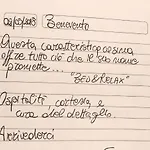 Benevento
Questa caratteristica casina
offre tutto ciò che il suo nome
promette...
"BED & RELAX"
Ospitalità cortesia e
cura del dettaglio.
Arrivederci